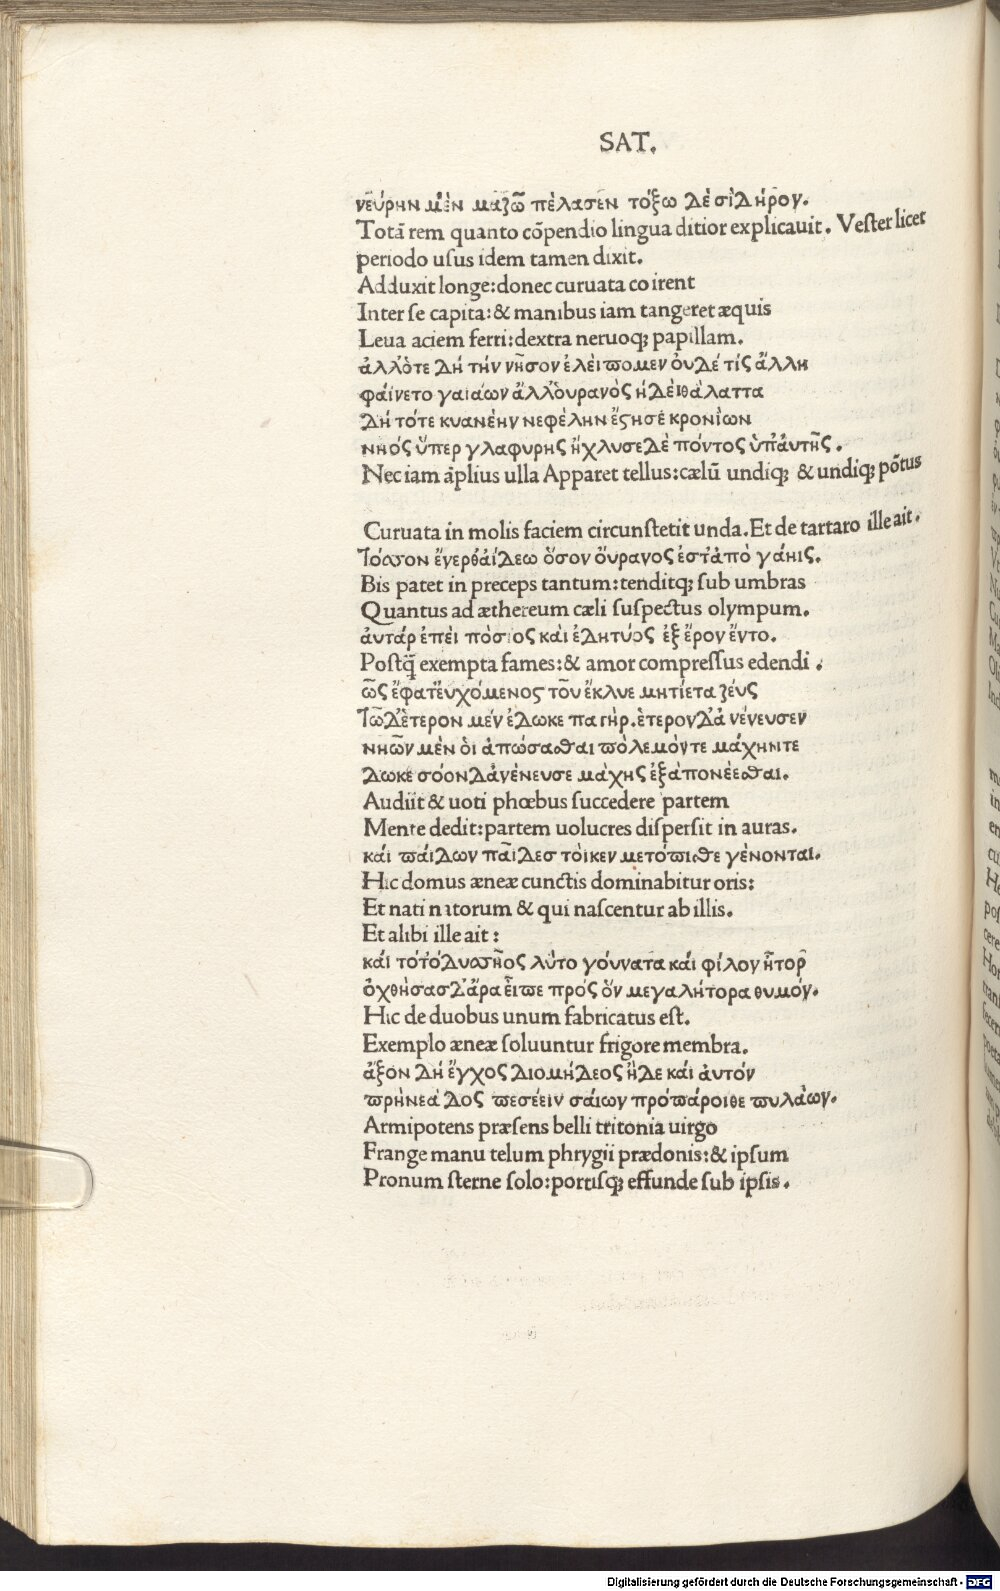 SAT.
νεύρην μὲν μαζῶ πέλασεν τόξω δὲ σίδηρον.
Totā rem quanto cōpendio lingua ditior explicauit. Vester licet
periodo usus idem tamen dixit.
Adduxit longe:donec curuata coirent
Inter se capita:& manibus iam tangeret æquis
Leua aciem ferri:dextra neruoq; papillam.
ἀλλ᾽ὁτε δή τήν νῆσον ἐλέιπομεν ὀυδέ τίς ἄλλη
φάινετο γαιάων ἄλλ᾽ὀυρανὸς ἠδὲ θάλαττα
δή τότε κυανέην νεφέλην ἔςησε κρονίων
νηός ὕπερ γλαφυρης ἤχλυσε δὲ πόντος ὑπ᾽ἀυτῆς.
Nec iam āplius ulla Apparet tellus:cælū undiq; & undiq; pōtus
Curuata in molis faciem circunstetit unda. Et de tartaro ille ait.
Τόσσον ἔνερθ᾽ἀίδεω ὅσον ὄυρανος ἐστ᾽ἀπὸ γάιης.
Bis patet in preceps tantum:tenditq; sub umbras
Quantus ad æthereum cæli suspectus olympum.
ἀυτάρ ἐπέι πόσιος κὰι ἐδητύος ἐξ ἔρον ἕντο.
Postq̄ exempta fames:& amor compressus edendi.
ὣς ἔφατ᾽ἔυχόμενος τοῦ ἔκλυε μητίετα ζέυς
Τῶ δ᾽ἕτερον μέν ἔδωκε πατήρ.ἕτερον δ᾽ἀνένευσεν
νηῶν μὲν ὁι ἀπώσασθαι πόλεμόν τε μάχην τε
δωκε σόον δ᾽ἀνένευσε μάχης ἐξαπονέεσθαι.
Audiit & uoti phœbus succedere partem
Mente dedit:partem uolucres dispersit in auras.
κάι πάιδων παῖδεσ τόικεν μετόπισθε γένονται.
Hic domus æneæ cunctis dominabitur oris:
Et nati natorum & qui nascentur ab illis.
Et alibi ille ait:
κάι τότ᾽ὀδυσσῆος λύτο γόυνατα κάι φίλον ἦτορ
ὀχθήσασ δ᾽ἄρα εἶπε πρός ὅν μεγαλήτορα θυμόν.
Hic de duobus unum fabricatus est.
Exemplo æneæ soluuntur frigore membra.
ἆξον δή ἔγχος διομήδεος ἠδε κάι ἀυτόν
πρηνέα δος πεσέειν σκάιων προπάροιθε πυλάων.
Armipotens præsens belli tritonia uirgo
Frange manu telum phrygii prædonis:& ipsum
Pronum sterne solo:portisq; effunde sub ipsis.
Digitalisierung gefördert durch die Deutsche Forschungsgemeinschaft - DFG